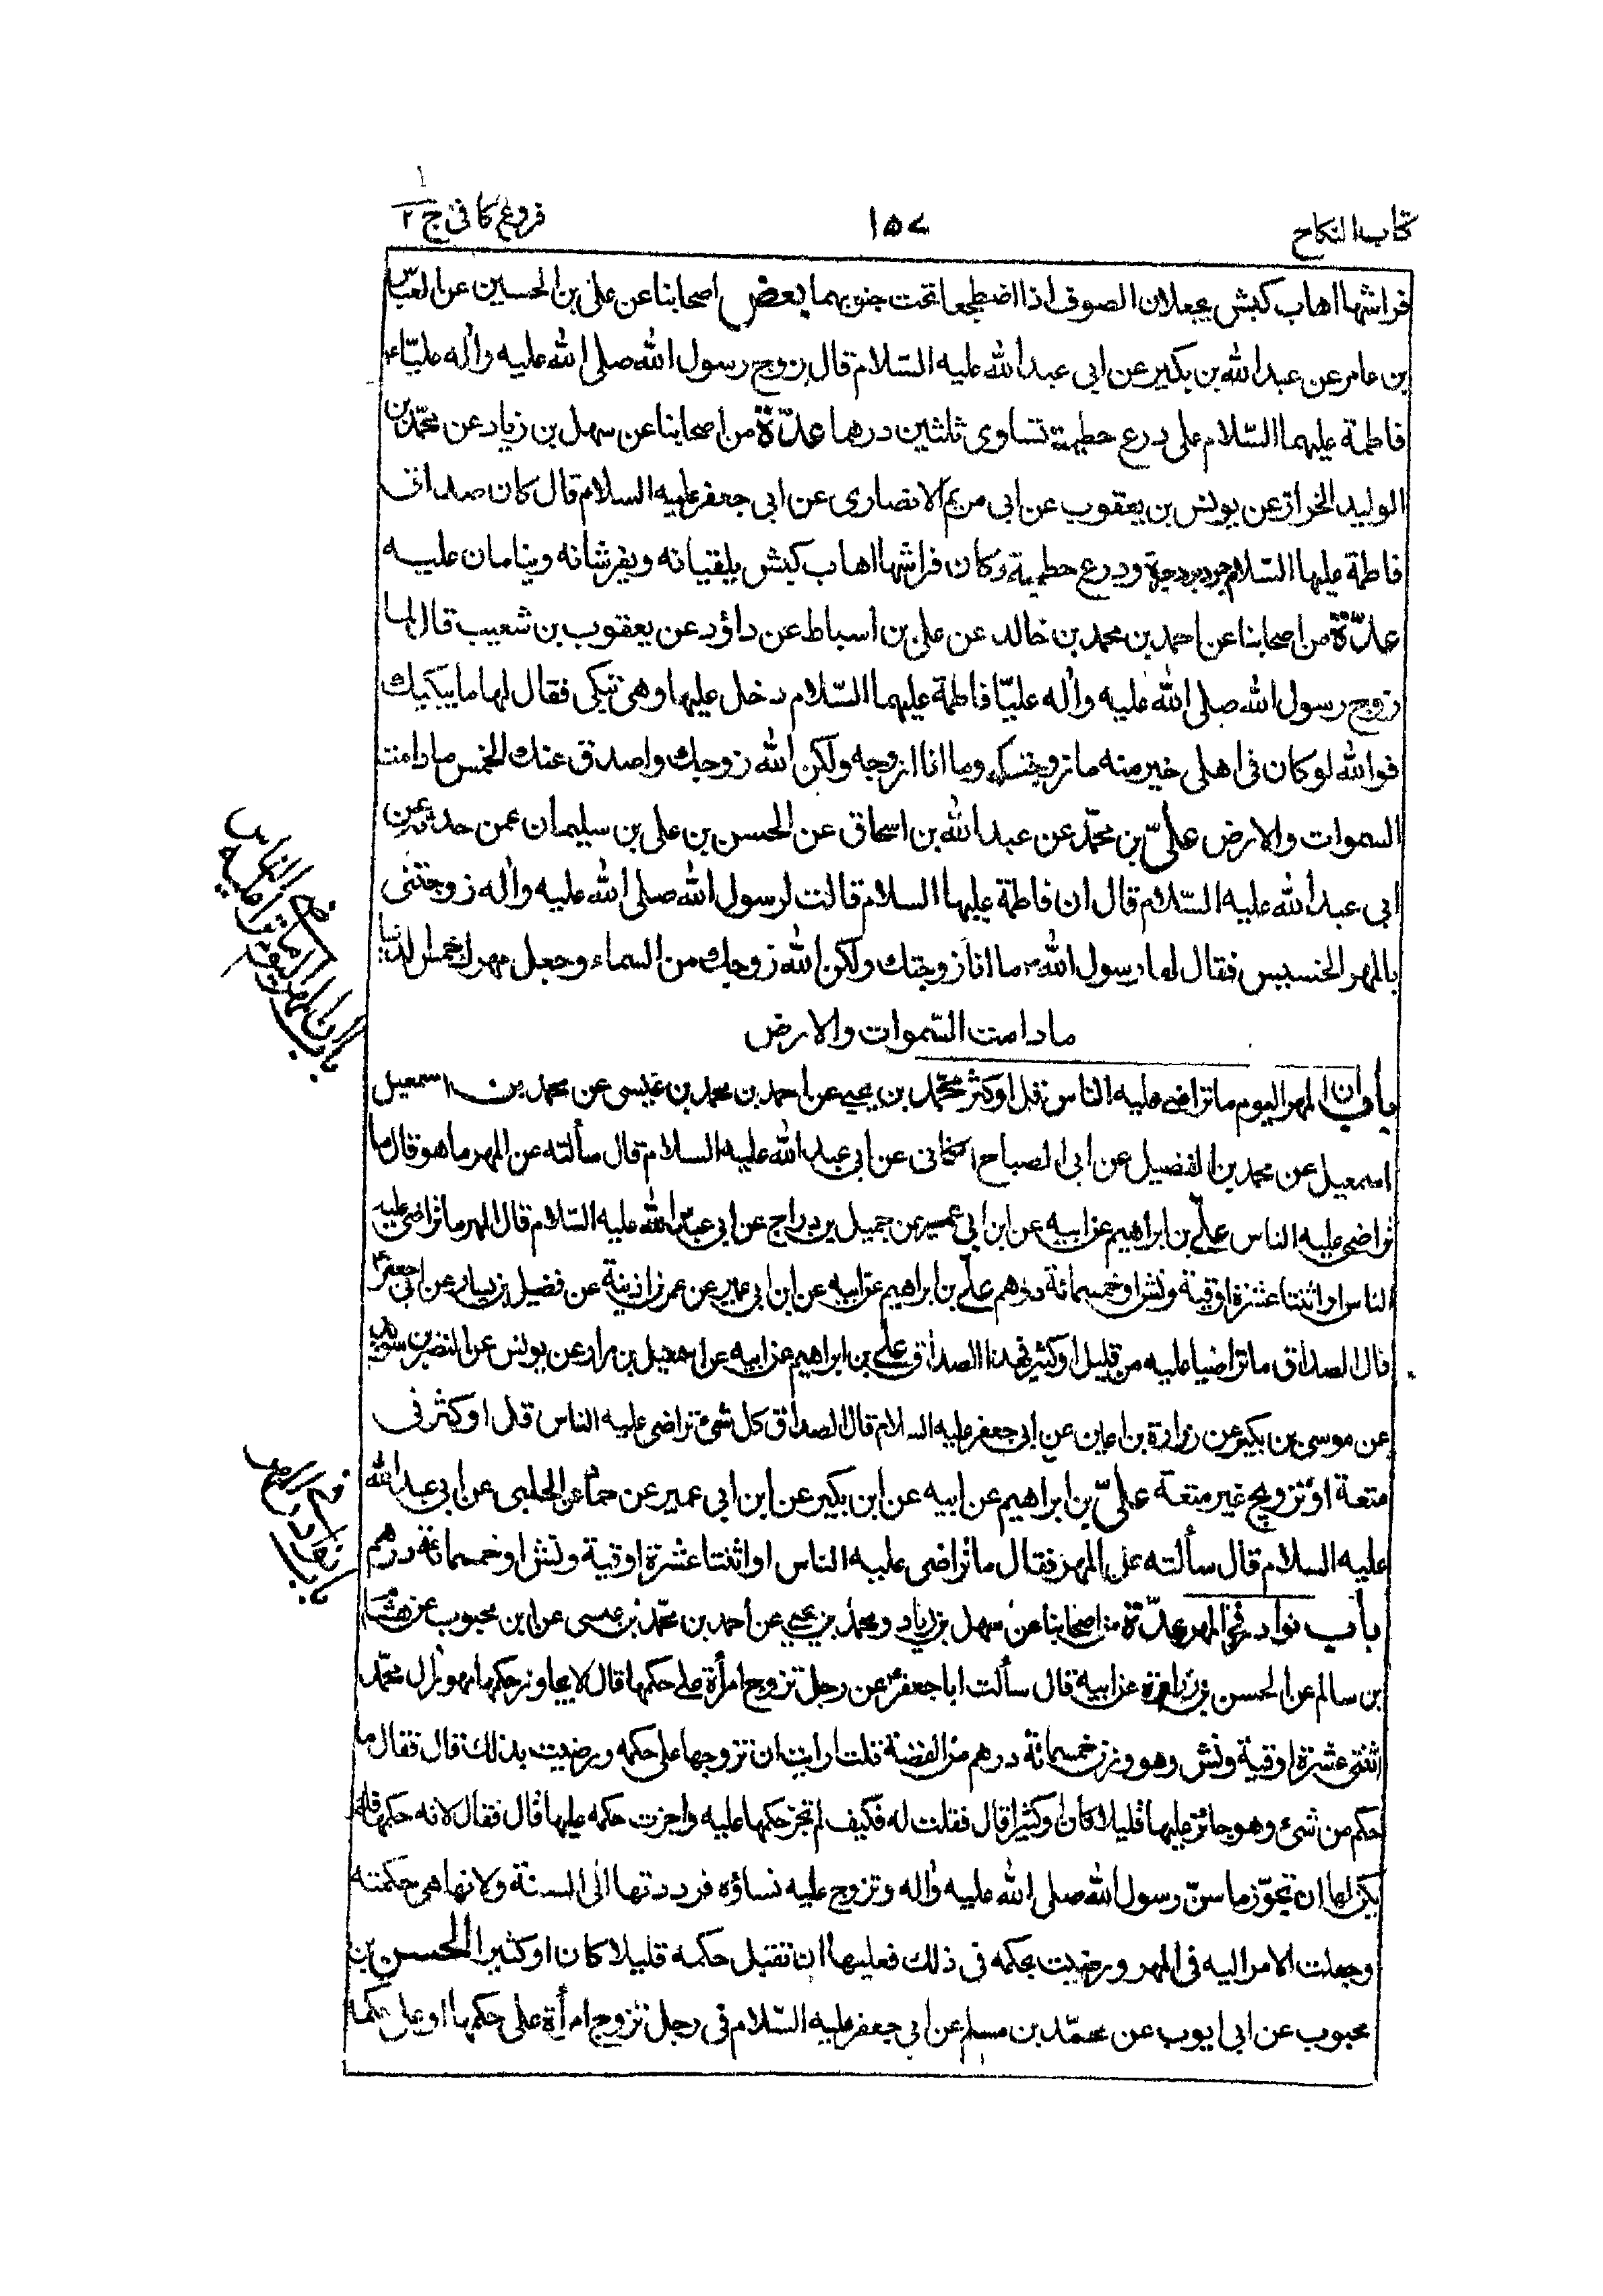 كتاب النكاح
١٥٧
فروع كافى ج ٢
١
فراشهما اهاب كبش يجعلان الصوف اذا اضطجعا تحت جنوبهما بعض اصحابنا عن على بن الحسين عن العباس
بن عامر عن عبد الله بن بكير عن ابى عبد الله عليه السّلام قال زوج رسول الله صلى الله عليه وأله عليّا ع
فاطمة عليهما السّلام على درع حطمية تساوى ثلثين درهما عدّة من اصحابنا عن سهل بن زياد عن محمّد بن
الوليد الخزاز عن يونس بن يعقوب عن ابى مريم الانصارى عن ابى جعفر عليه السلام قال كان صداق
فاطمة عليها السّلام جرد برد حبرة ودرع حطمية وكان فراشها اهاب كبش يلقيانه ويفرشانه وينامان عليه
عدّة من اصحابنا عن احمد بن محمد بن خالد عن على بن أسباط عن داؤد عن يعقوب بن شعيب قال لما
زوج رسول الله صلى الله عليه وأله عليّا فاطمة عليهما السّلام دخل عليها وهى تبكى فقال لها ما يبكيك
فوالله لو كان فى اهلى خير منه ما زوجتكه وما انا ازوجه ولكن الله زوجك واصدق عنك الخمس ما دامت
السموات والارض علىّ بن محمّد عن عبد الله بن اسحاق عن الحسن بن على بن سليمان عمن حدثه عن
ابى عبد الله عليه السّلام قال ان فاطمة عليها السلام قالت لرسول الله صلى الله عليه وأله زوجتنى
بالمهر الخسيس فقال لها رسول الله ص ما انا زوجتك ولكن الله زوجك من السماء وجعل مهرك خمس الدنيا
ما دامت السّموات والارض
باب ان المهر اليوم ما تراضى عليه الناس قل او كثر محمّد بن يحيى عن احمد بن محمد بن عيسى عن محمد بن اسمعيل
اسمعيل عن محمد بن الفضيل عن ابى الصباح الكنانى عن ابى عبد الله عليه السلام قال سألته عن المهر ما هو قال ما
تراضى عليه الناس علىّ بن ابراهيم عن ابيه عن ابن ابى عمير عن جميل بن دراج عن ابى عبد الله عليه السّلام قال المهر ما تراضى عليه
الناس او اثنتا عشرة اوقية ونش او خمسمائة درهم علىّ بن ابراهيم عن ابيه عن ابن ابى عمير عن عمر بن اذينة عن فضيل بن يسار عن ابى جعفر ع
قال الصداق ما تراضيا عليه من قليل او كثير فهذا الصداق على بن ابراهيم عن ابيه عن اسمعيل بن مرار عن يونس عن النضر بن سويد
عن موسى بن بكير عن زرارة بن اعين عن ابى جعفر عليه السلام قال الصداق كل شىء تراضى عليه الناس قل او كثر فى
متعة او تزويج غير متعة علىّ بن ابراهيم عن ابيه عن ابن بكير عن ابن ابى عمير عن حماد عن الحلبى عن ابى عبد الله
عليه السلام قال سألته عن المهر فقال ما تراضى عليه الناس او اثنتا عشرة اوقية ونش او خمسمائة درهم
باب نوادر فى المهر عدّة من اصحابنا عن سهل بن زياد ومحمد بن يحيى عن أحمد بن محمّد بن عيسى عن ابن محبوب عن هشام
بن سالم عن الحسن بن زرارة عن ابيه قال سألت ابا جعفر ع عن رجل تزوج امرأة على حكمها قال لا يجاوز حكمها مهور ال محمّد
اثنتى عشرة اوقية ونش وهو وزن خمسمائة درهم من الفضة قلت ارايت ان تزوجها على حكمه ورضيت بذلك قال فقال ما
حكم من شىء وهو جائز عليها قليلا كان او كثيرا قال فقلت له فكيف لم تجز حكمها عليه واجزت حكمه عليها قال فقال لانه حكمها فلم
يكن لها ان تجوّز ما سنّ رسول الله صلى الله عليه وأله وتزوج عليه نساؤه فرددتها الى السنة ولانها هى حكمته
وجعلت الامر اليه فى المهر ورضيت بحكمه فى ذلك فعليها ان تقبل حكمه قليلا كان او كثيرا الحسن بن
محبوب عن ابى ايوب عن محمّد بن مسلم عن ابى جعفر عليه السّلام فى رجل تزوج امرأة على حكمها او على حكمه
باب ان المهر اليوم ما تراضى عليه الناس
باب نوادر فى المهر